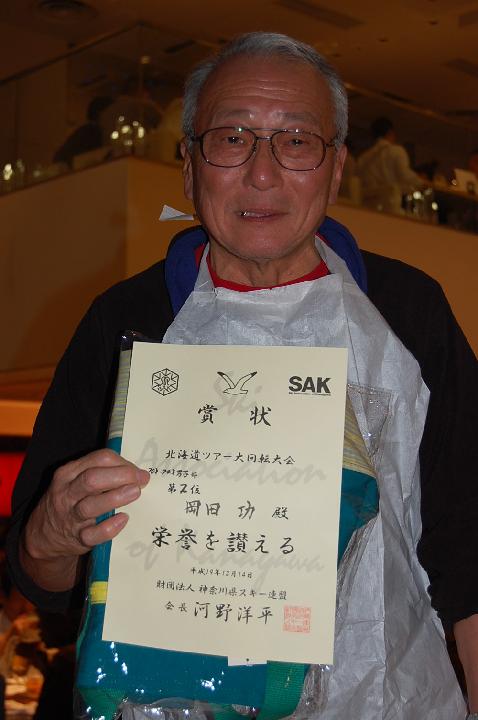 SAK
賞状
北海道ツアー大回転大会
第2位
岡田 功 殿
栄誉を讃える
平成19年12月14日
財団法人 神奈川県スキー連盟
会長 河野洋平
Ski
Association
of Kanagawa